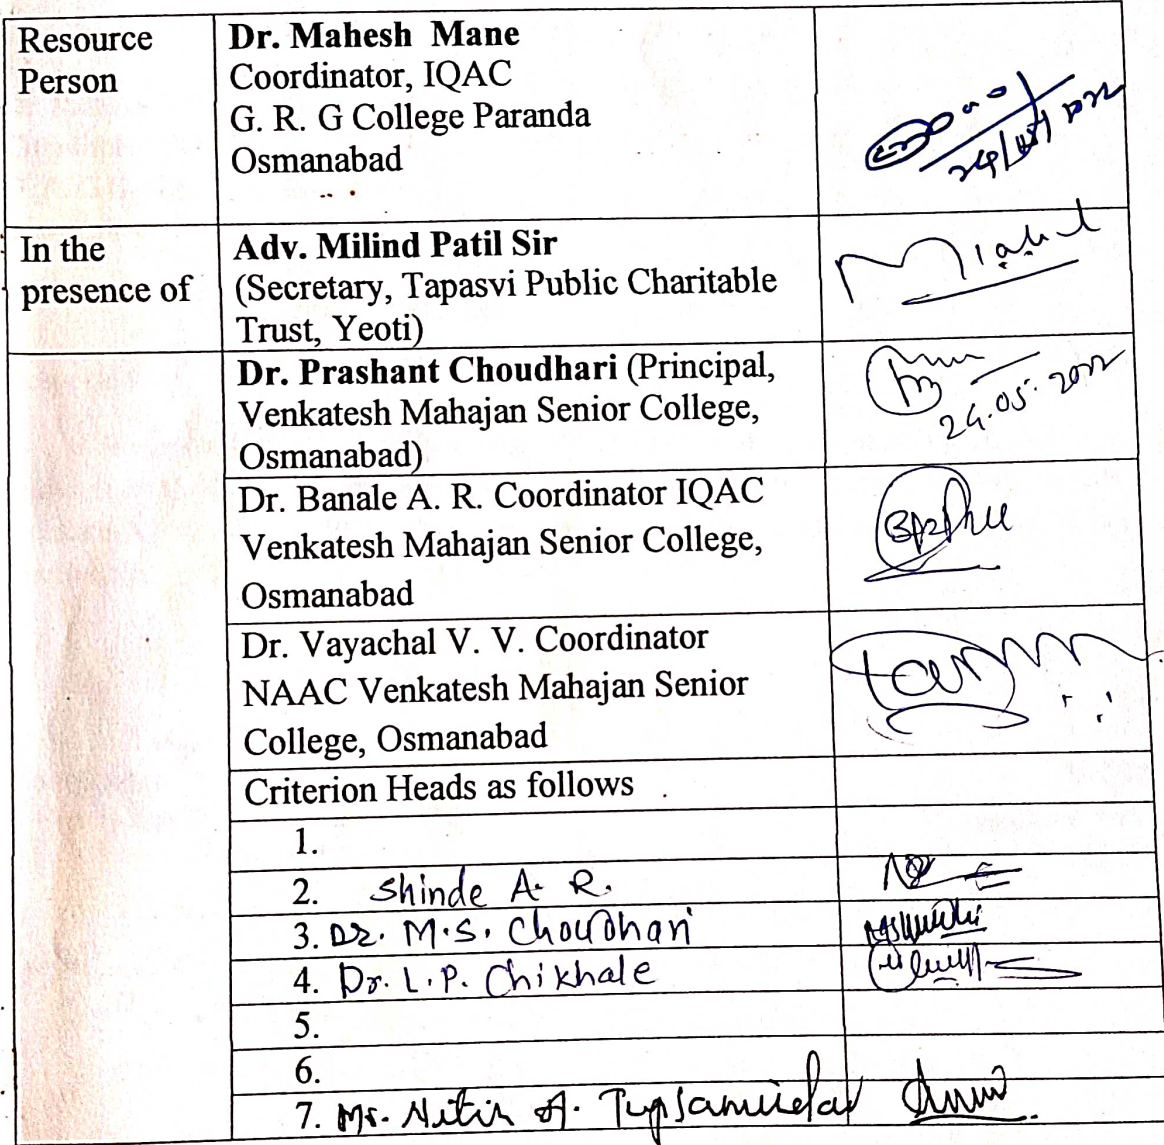 Resource Person
Dr. Mahesh Mane
Coordinator, IQAC
G. R. G College Paranda
Osmanabad
In the presence of
Adv. Milind Patil Sir
(Secretary, Tapasvi Public Charitable
Trust, Yeoti)
Dr. Prashant Choudhari (Principal,
Venkatesh Mahajan Senior College,
Osmanabad)
24.05.2022
Dr. Banale A. R. Coordinator IQAC
Venkatesh Mahajan Senior College,
Osmanabad
Dr. Vayachal V. V. Coordinator
NAAC Venkatesh Mahajan Senior
College, Osmanabad
Criterion Heads as follows
1.
2. Shinde A. R.
3. Dr. M.S. Choudhari
4. Dr. L.P. Chikhale
5.
6.
7. Mr. Nitin A.